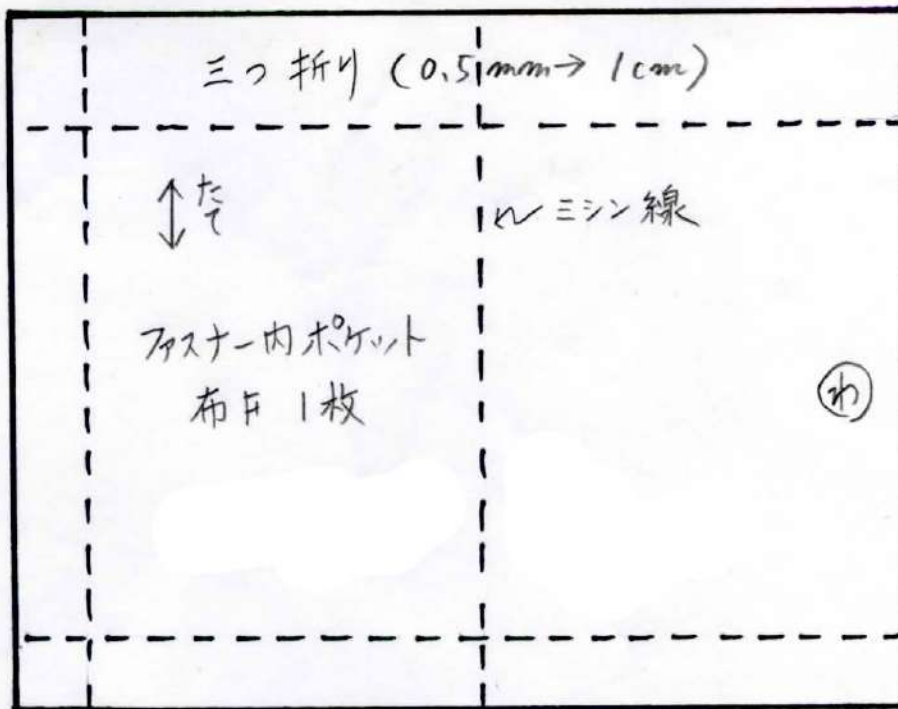 三つ折り (0.5mm→1cm)
たて
ミシン線
ファスナー内ポケット
布F 1枚
わ